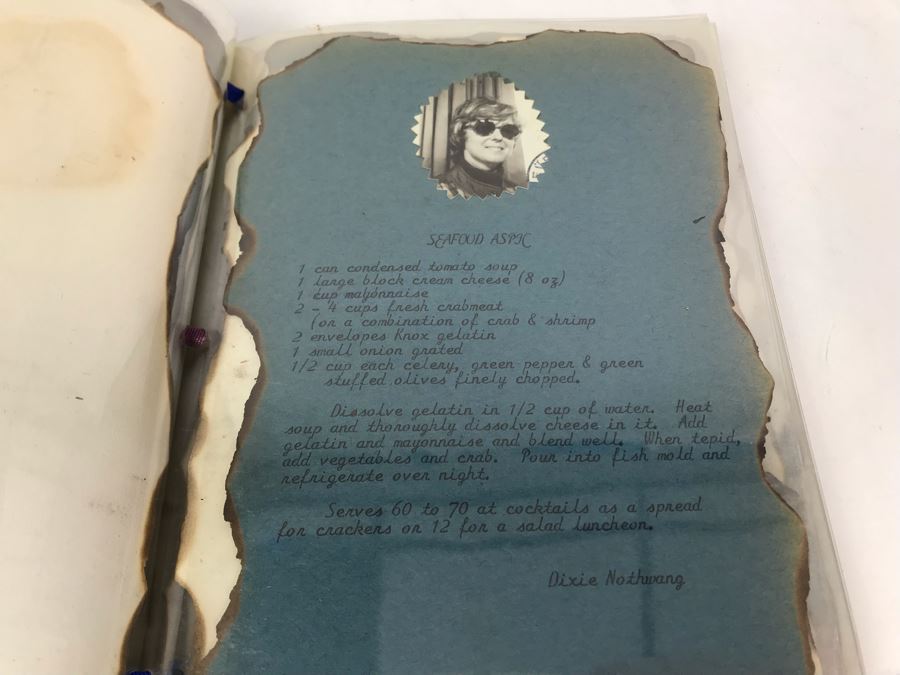 SEAFOOD ASPIC
1 can condensed tomato soup
1 large block cream cheese (8 oz)
1 cup mayonnaise
2 - 4 cups fresh crabmeat
(or a combination of crab & shrimp
2 envelopes Knox gelatin
1 small onion grated
1/2 cup each celery, green pepper & green
stuffed olives finely chopped.
Dissolve gelatin in 1/2 cup of water. Heat
soup and thoroughly dissolve cheese in it. Add
gelatin and mayonnaise and blend well. When tepid,
add vegetables and crab. Pour into fish mold and
refrigerate over night.
Serves 60 to 70 at cocktails as a spread
for crackers or 12 for a salad luncheon.
Dixie Nothwang